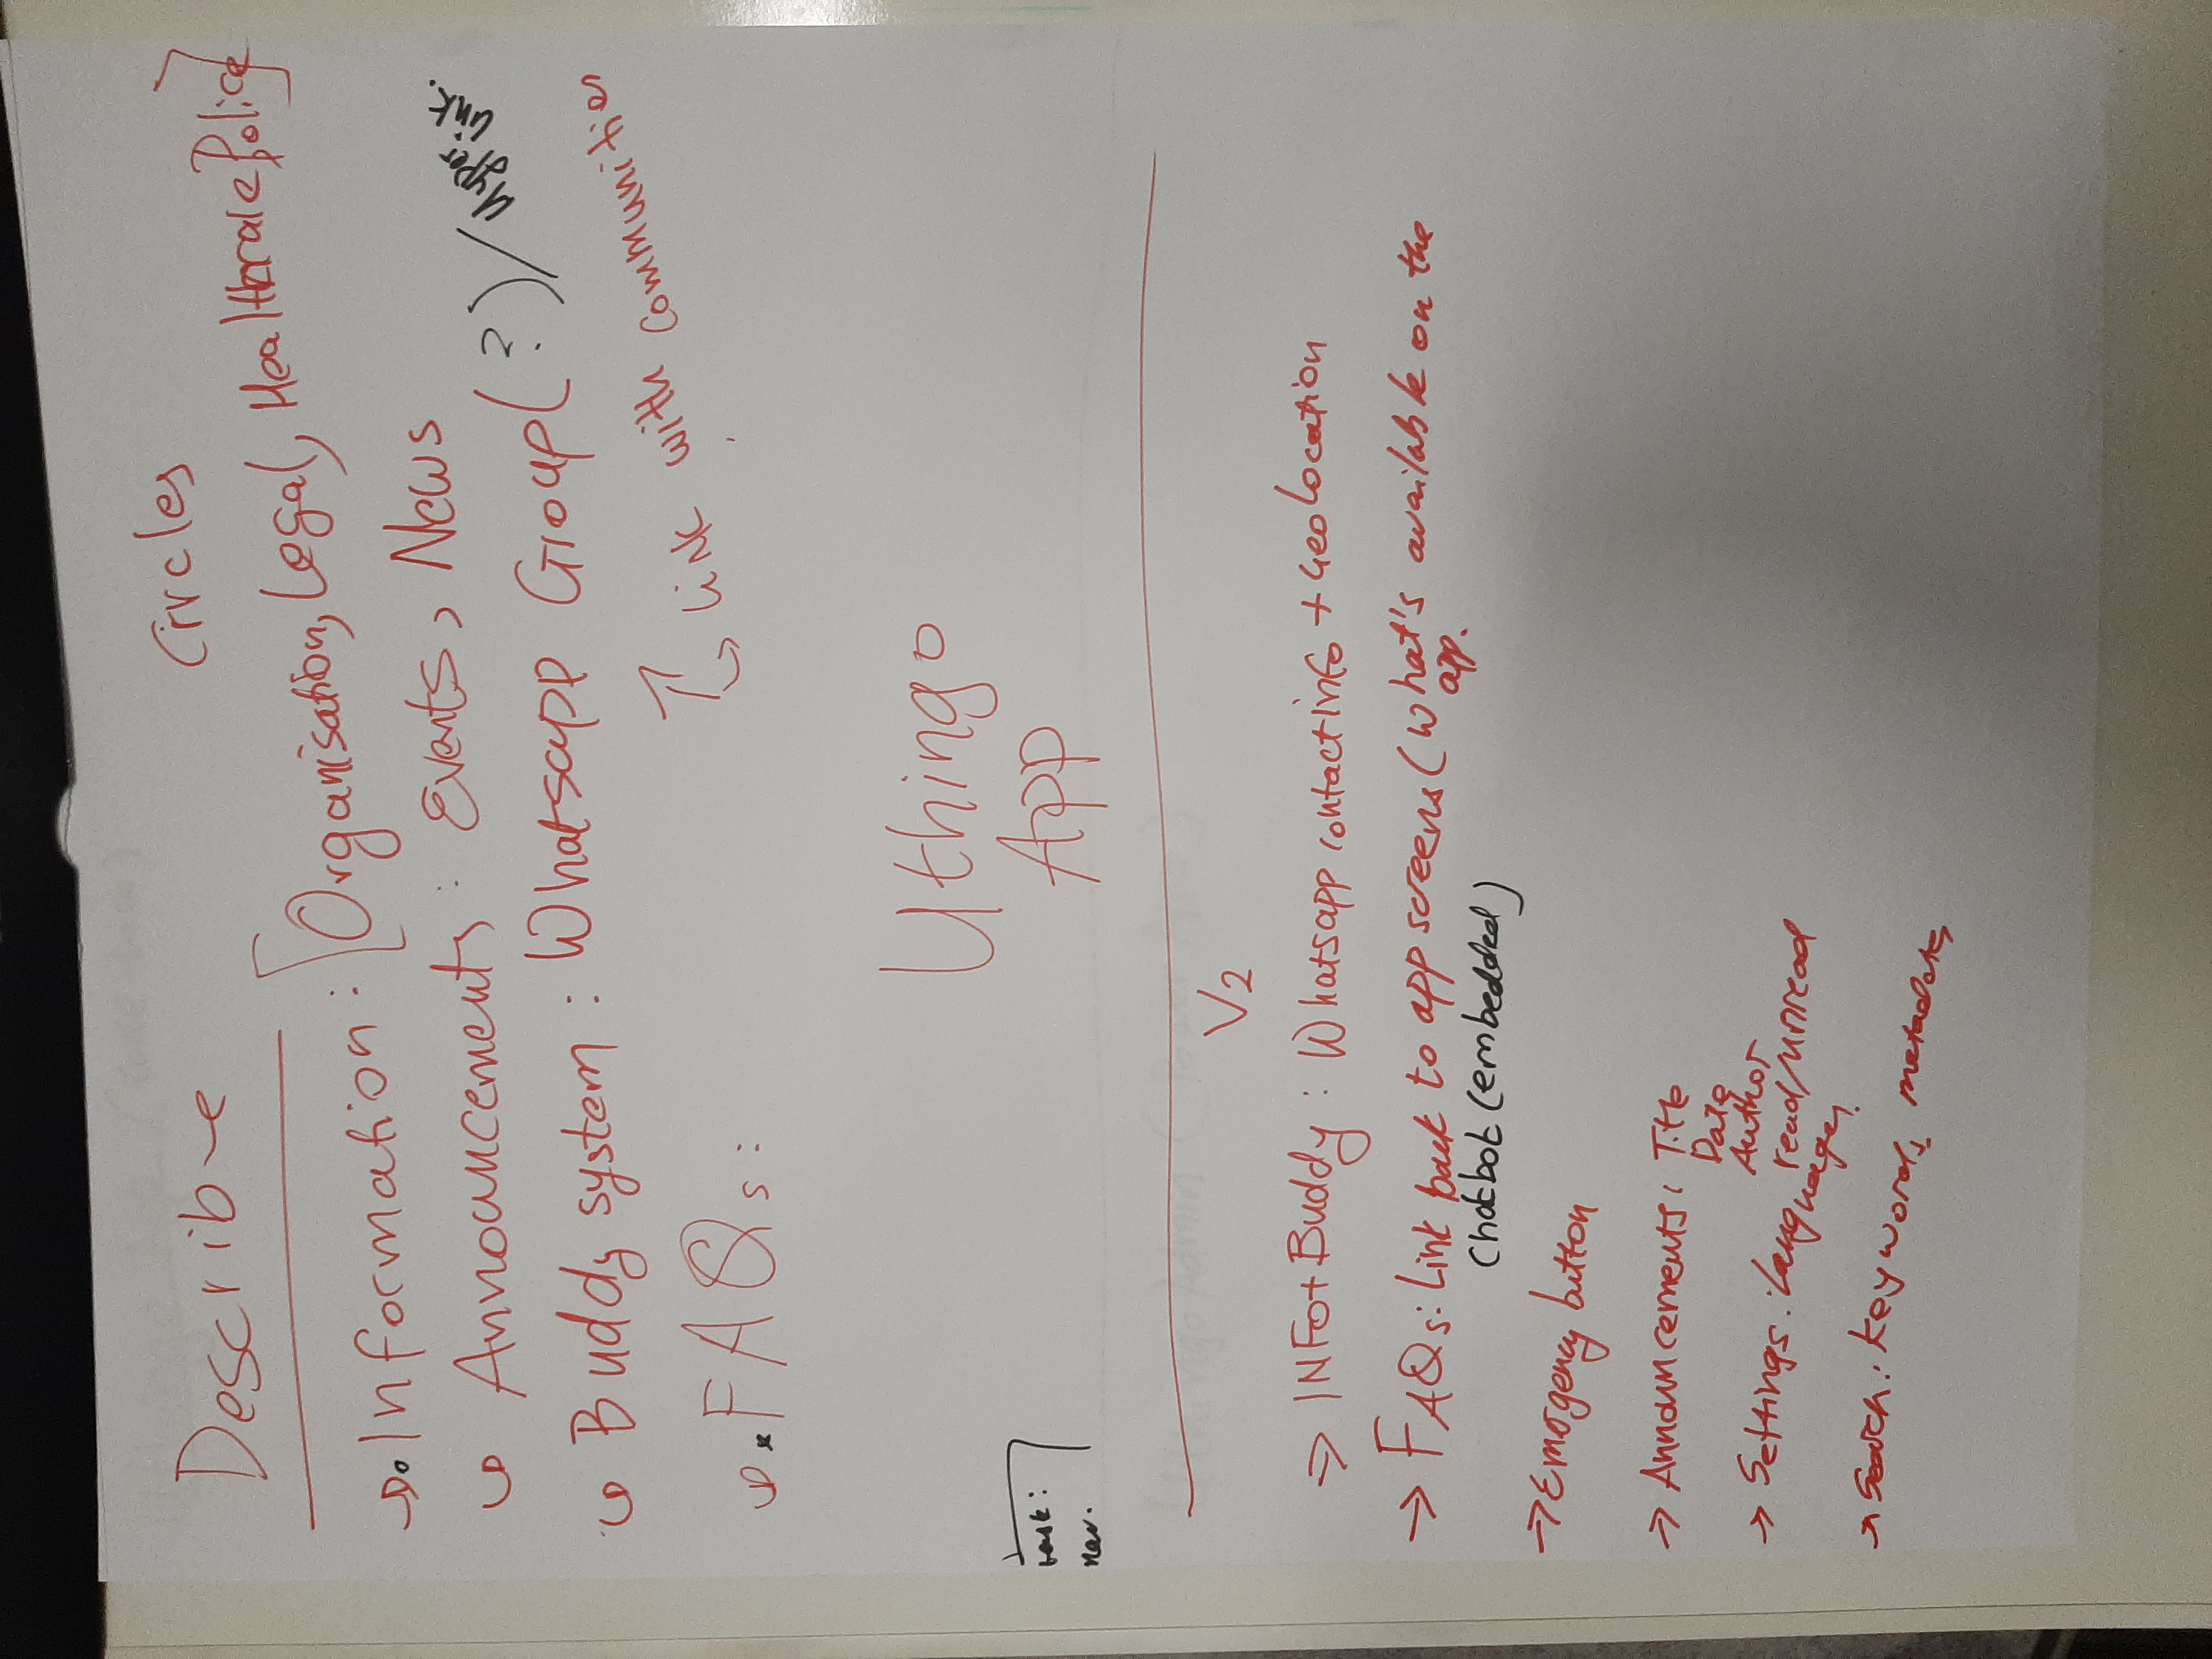 Describe
Circles
Information : [Organisation, Legal, Healthcare Police]
Announcements : Events, News
Buddy system : Whatsapp Group(?) / Hyper link.
Link with communities
FAQs :
Uthingo
App
task:
nav.
V2
⇒ INFO + Buddy : Whatsapp contact info + Geolocation
→ FAQs: Link back to app screens (what's available on the
app.
Chatbot (embedded)
→ Emergency button
→ Announcements: Title
Date
Author
read/unread
→ Settings: languages
→ Search: keywords, metadata